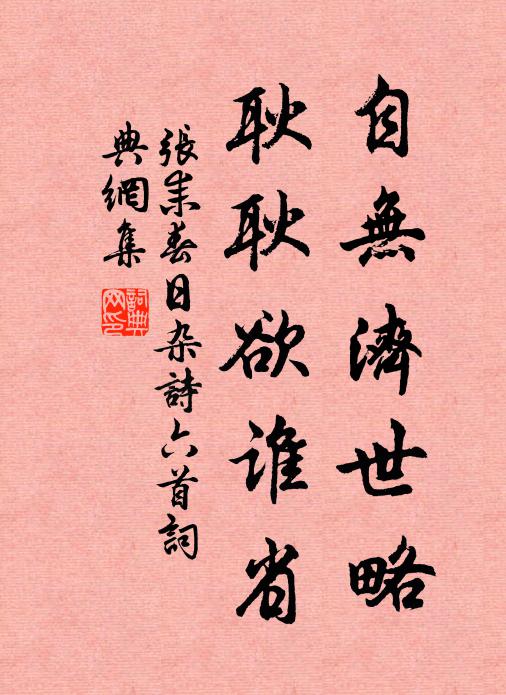 自無濟世略
耿耿欲誰省
張耒春日杂詩六首詞
典網集
詞典網印